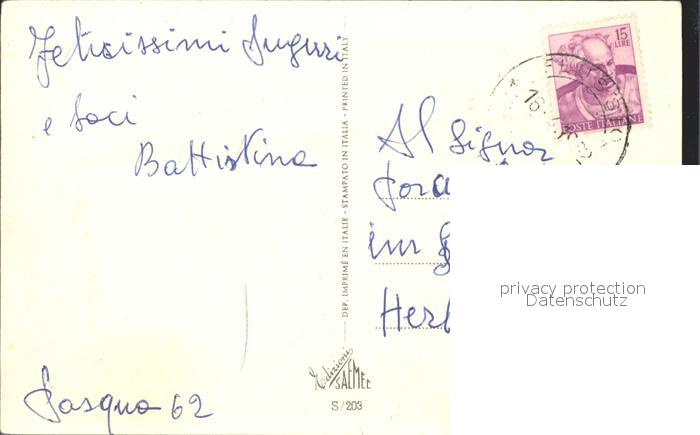 Felicissimi Auguri
e baci
Battistina
Pasqua 62
DEP. IMPRIMÉ EN ITALIE - STAMPATO IN ITALIA - PRINTED IN ITALY
Edizioni
SAEMEC
S/203
15
LIRE
POSTE ITALIANE
Al Signor
im
Herb
privacy protection
Datenschutz